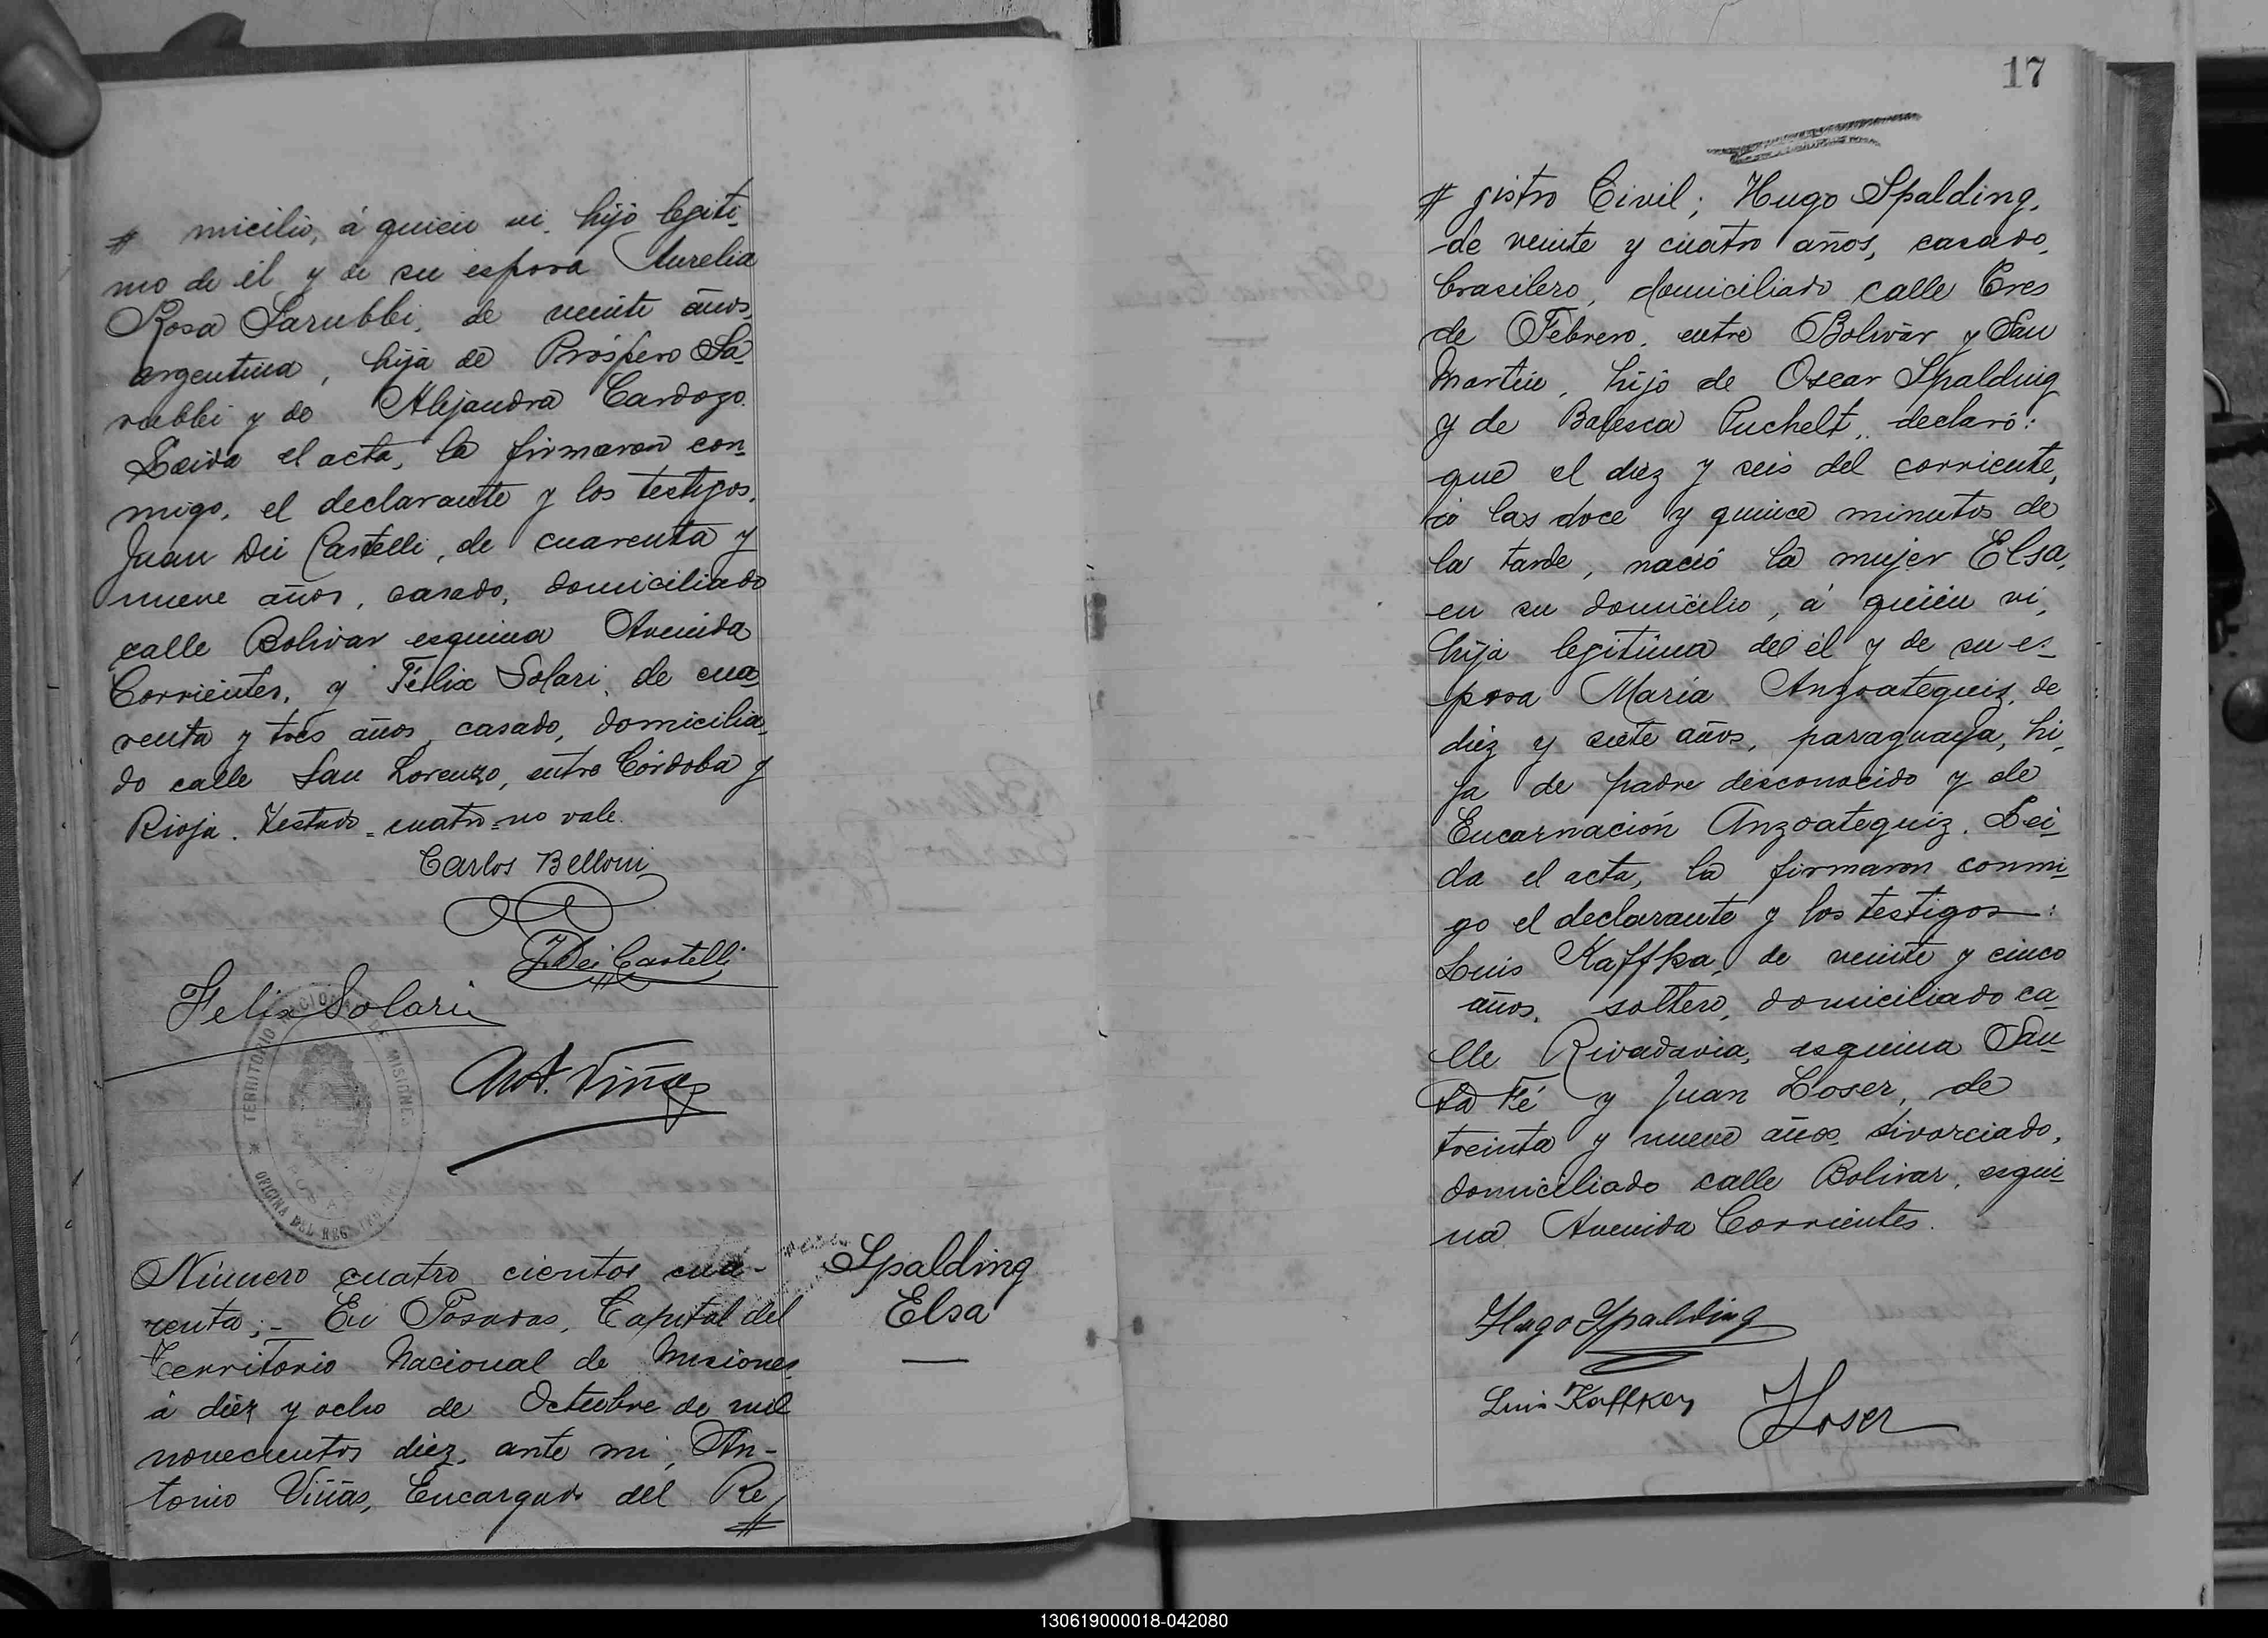 # micilio, á quien vi, hijo legiti-
mo de él y de su esposa Aurelia
Rosa Sarubbi, de veinte años,
argentina, hija de Próspero Sa-
rubbi y de Alejandra Cardozo.
Leida el acta, la firmaron con-
migo, el declarante y los testigos,
Juan Dei Castelli, de cuarenta y
nueve años, casado, domiciliado
calle Bolivar esquina Avenida
Corrientes, y Félix Solari, de cua-
renta y tres años, casado, domicilia-
do calle San Lorenzo, entre Córdoba y
Rioja. Testado = cuatro = no vale.
Carlos Belloni
J. Dei Castelli
Felix Solari
Ant. Viñas
TERRITORIO NACIONAL DE MISIONES
OFICINA DEL REG
Número cuatro cientos cua-
renta;- En Posadas, Capital del
Territorio Nacional de Misiones
á diez y ocho de Octubre de mil
novecientos diez, ante mi, An-
tonio Viñas, Encargado del Re
#
Spalding
Elsa
17
# gistro Civil; Hugo Spalding,
de veinte y cuatro años, casado,
brasilero, domiciliado calle Tres
de Febrero, entre Bolivar y San
Martin, hijo de Oscar Spalding
y de Balesca Puchelt, declaró:
que el diez y seis del corriente,
á las doce y quince minutos de
la tarde, nació la mujer Elsa,
en su domicilio, á quien vi,
hija legitima del él y de su es-
posa Maria Anzoateguiz, de
diez y siete años, paraguaya, hi-
ja de padre desconocido y de
Encarnación Anzoateguiz. Lei-
da el acta, la firmaron conmi-
go el declarante y los testigos:
Luis Kaffka, de veinte y cinco
años, soltero, domiciliado ca-
lle Rivadavia, esquina San-
ta Fé y Juan Loser, de
treinta y nueve años, divorciado,
domiciliado calle Bolivar, esqui-
na Avenida Corrientes.
Hugo Spalding
Luis Kaffka
J Loser
130619000018-042080